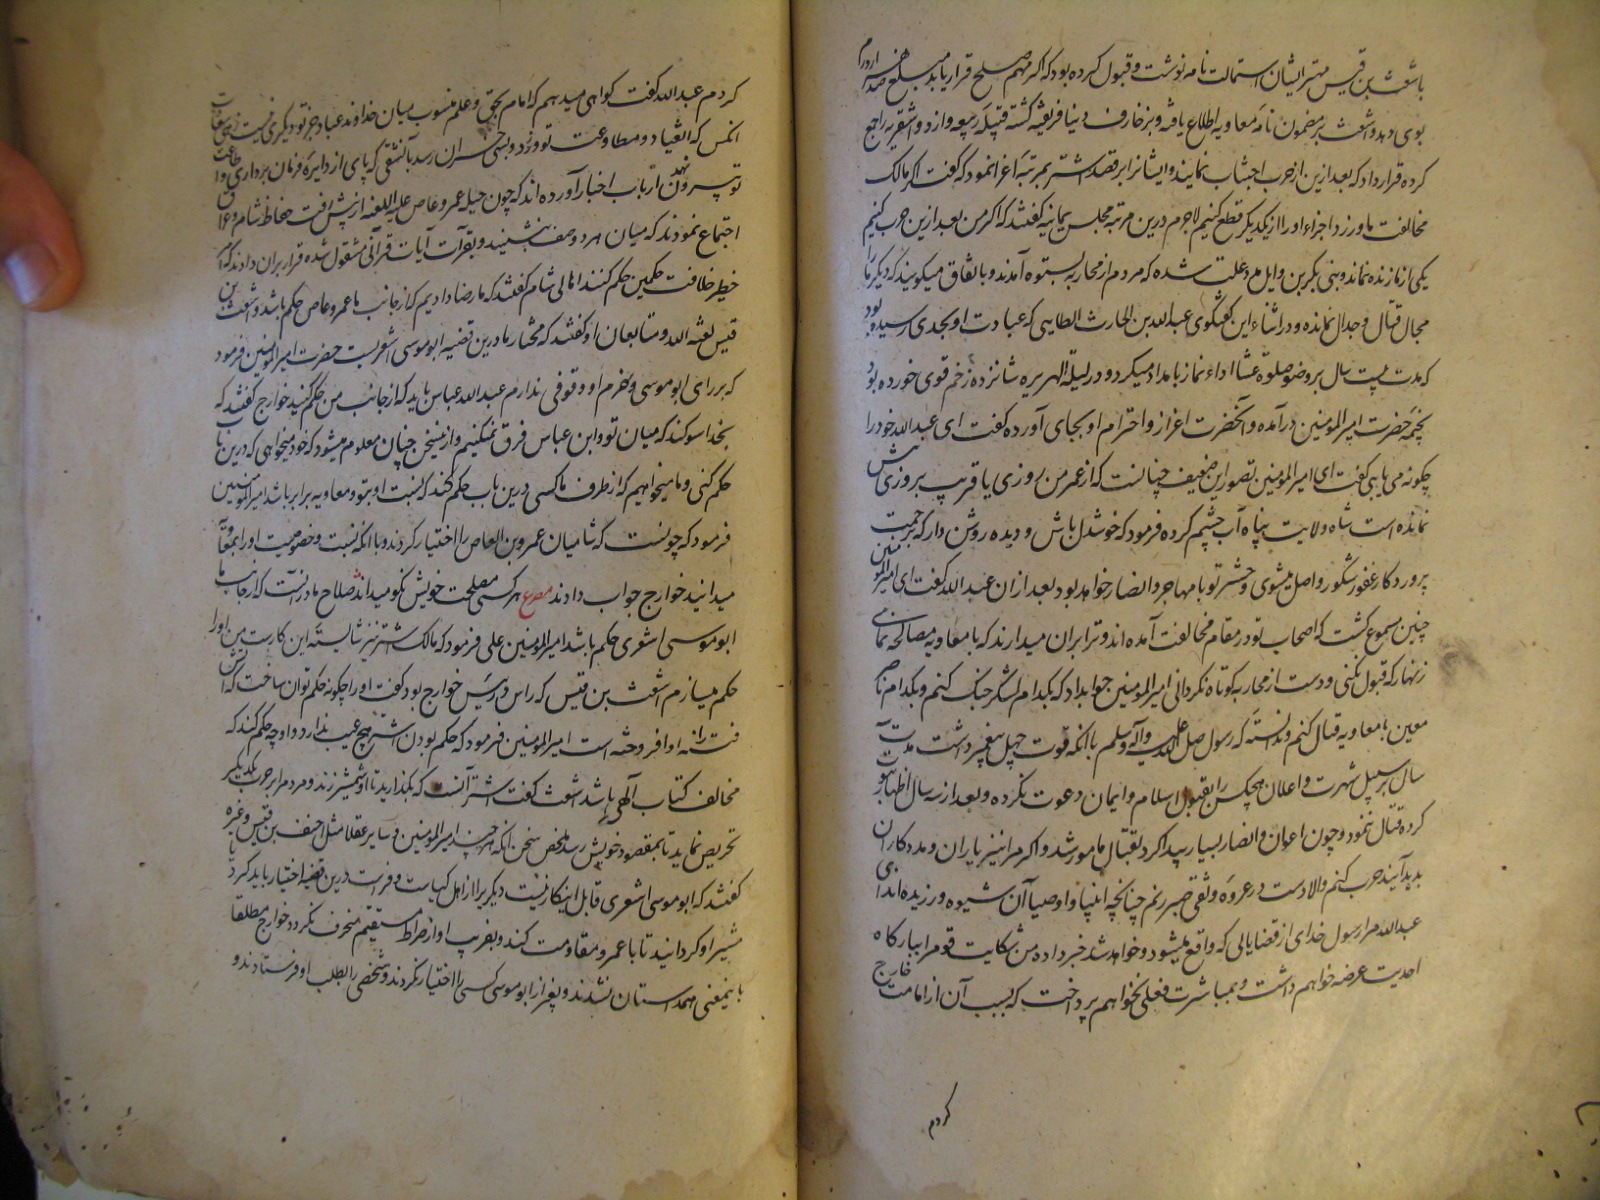 باشعث بن قیس مهتر ایشان استمالت نامه نوشت و قبول کرده بود که اگر مهم صلح قرار یابد مبلغ صد هزار درم
بوی دهد و اشعث بر مضمون نامه معاویه اطلاع یافته و بزخارف دنیا فریفته گشته قبیله ربیعه و ازد و اشقریه راجع
کرده قرار داد که بعد ازین از حرب اجتناب نمایند و ایشانرا بر قصد اشتر بمرتبه اغرا نمود که گفت اگر مالک
مخالفت ما ورزد اجزاء او را از یکدیگر قطع کنیم لاجرم درین مرتبه مجلس یمانیه گفتند که اگر من بعد ازین حرب کنیم
یکی از ما زنده نماند و بنی بکر بن وایل مدد علت شده که مردم از محاربه بستوه آمدند و باتفاق میگویند که دیگر ما را
مجال قتال و جدال نمانده و در اثناء این گفتگوی عبدالله بن الحارث الطایی که عبادت او بحدی رسیده بود
که مدت بیست سال بر وضو صلوة عشا اداء نماز بامداد میکرد و در لیلة الهریره شانزده زخم قوی خورده بود
بخیمه حضرت امیرالمومنین درآمده و آنحضرت اعزاز و احترام او بجای آورده گفت ای عبدالله خود را
چگونه می یابی گفت ای امیرالمومنین تصور این ضعیف چنانست که از عمر من روزی یا قریب بروزی بیش
نمانده است شاه ولایت پناه آب چشم کرده فرمود که خوشدل باش و دیده روشن دار که برحمت
پروردکار غفور شکور واصل میشوی و حشر تو با مهاجر و انصار خواهد بود بعد از ان عبدالله گفت ای امیرالمومنین
چنین مسموع گشت که اصحاب تو در مقام مخالفت آمده اند و ترا بران میدارند که با معاویه مصالحه نمایی
زنهار که قبول نکنی و دست از محاربه کوتاه نگردانی امیرالمومنین جواب داد که بکدام لشکر جنک کنم و بکدام ناصر
معین با معاویه قتال کنم و ندانسته که رسول صلی الله علیه وآله وسلم با آنکه قوت چهل پیغمبر داشت مدت سه
سال بر سبیل شهرت و اعلان هیچکس را بقبول اسلام و ایمان دعوت نکرده و بعد از سه سال اظهار نبوت
کرده قتال ننمود و چون اعوان و انصار بسیار پیدا کرد بقتال مامور شد و اگر مرا نیز یاران و مددکاران
پدید آیند حرب کنم والا دست در عروه وثقی صبر زنم چنانچه انبیا و اوصیا آن شیوه ورزیده اند ای
عبدالله مرا رسول خدای از قضایایی که واقع میشود و خواهد شد خبر داده من شکایت قوم را ببارکاه
احدیت عرضه خواهم داشت و بمباشرت فعلی نخواهم پرداخت که بسبب آن از امامت خارج
کردم
کردم عبدالله گفت گواهی میدهم که امام بحق و علم منسوب میان خداوند عباد جز تو دیگری نیست
آنکس که انقیاد و مطاوعت تو ورزد و بسی خسران رسد بآنشقی که پای از دایره فرمان برداری و اطاعت
تو بیرون نهد ارباب اخبار آورده اند که چون حیله عمرو عاص علیه اللعنه از پیش رفت حفاظ شام و عراق
اجتماع نمودند که میان هر دو صف بنشینند و بقرآت آیات قرآنی مشغول شده قرار بران دادند که امر
خطیر خلافت حکمین حکم کنند اهالی شام گفتند که ما رضا دادیم که از جانب ما عمرو عاص حکم باشد و اشعث بن
قیس لعنه الله و متابعان او گفتند که مختار ما درین قضیه ابوموسی اشعریست حضرت امیرالمومنین فرمود
که بر رای ابوموسی و حزم او وقوفی ندارم عبدالله عباس باید که از جانب من حکم کنید خوارج گفتند که
بخدا سوکند که میان تو و ابن عباس فرق نمیکنیم و از سخن چنان معلوم میشود که خود میخواهی که درین باب
حکم کنی و ما میخواهیم که از طرف ما کسی درین باب حکم کند که نسبت او بتو و معاویه برابر باشد امیرالمومنین
فرمود که چونست که شامیان عمرو بن العاص را اختیار کردند و با آنکه نسبت و خصوصیت او را بمعاویه
میدانید خوارج جواب دادند مصرع هر کسی مصلحت خویش نکو میداند صلاح ما درآنست که از جانب ما
ابوموسی اشعری حکم باشد امیرالمومنین علی فرمود که مالک اشتر نیز شایسته این کارست من او را
حکم میسازم اشعث بن قیس که راس و رییس خوارج بود گفت او را چگونه حکم توان ساخت که آتش
فتنه را او افروخته است امیرالمومنین فرمود که حکم بودن اشتر هیچ عیب ندارد و او چه حکم کند که
مخالف کتاب الهی باشد اشعث گفت اشتر آنست که بگذارید تا او شمشیر زند و مردم را بر حرب یکدیگر
تحریص نماید تا بمقصود خویش رسد ملخص سخن آنکه هر چند امیرالمومنین و سایر عقلا مثل احنف بن قیس و غیره
گفتند که ابوموسی اشعری قابل اینکار نیست دیگری را از اهل کیاست و فراست درین قضیه اختیار باید کرد یا
مشیر او گردانید تا با عمرو مقاومت کند و بفریب او از صراط مستقیم منحرف نگردد خوارج مطلقا
باینمعنی همداستان نشدند و بغیر از ابوموسی کسی را اختیار نکردند و شخصی را بطلب او فرستادند و